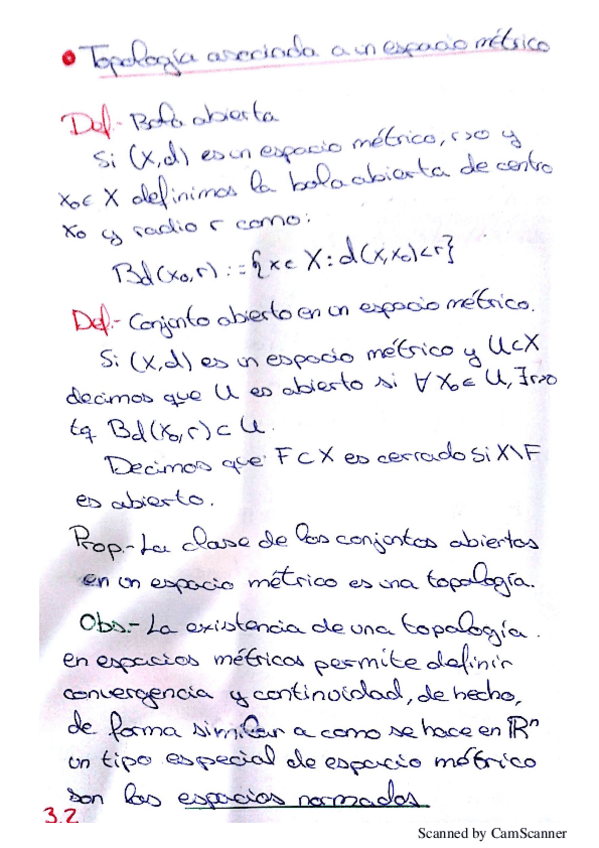 • Topología asociada a un espacio métrico
Def.- Bola abierta
Si (X,d) es un espacio métrico, r>0 y
x₀∈ X definimos la bola abierta de centro
x₀ y radio r como:
Bd(x₀,r) := {x∈ X: d(x,x₀)<r}
Def.- Conjunto abierto en un espacio métrico.
Si (X,d) es un espacio métrico y U⊂X
decimos que U es abierto si ∀ x₀∈ U, ∃r>0
tq Bd(x₀,r)⊂ U.
Decimos que F⊂X es cerrado si X\F
es abierto.
Prop.- La clase de los conjuntos abiertos
en un espacio métrico es una topología.
Obs.- La existencia de una topología
en espacios métricos permite definir
convergencia y continuidad, de hecho,
de forma similar a como se hace en ℝⁿ
un tipo especial de espacio métrico
son los espacios normados
3.2
Scanned by CamScanner